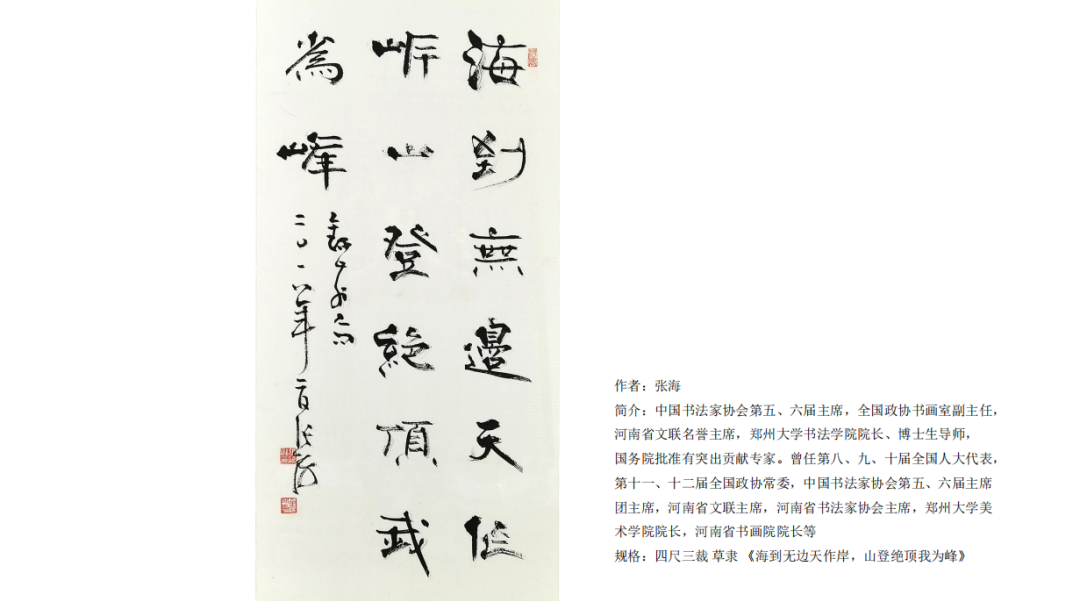 海到無邊天作
岸山登絕頂我
為峰
年 張海
作者：张海
简介：中国书法家协会第五、六届主席，全国政协书画室副主任，
河南省文联名誉主席，郑州大学书法学院院长、博士生导师，
国务院批准有突出贡献专家。曾任第八、九、十届全国人大代表，
第十一、十二届全国政协常委，中国书法家协会第五、六届主席
团主席，河南省文联主席，河南省书法家协会主席，郑州大学美
术学院院长，河南省书画院院长等
规格：四尺三裁 草隶 《海到无边天作岸，山登绝顶我为峰》